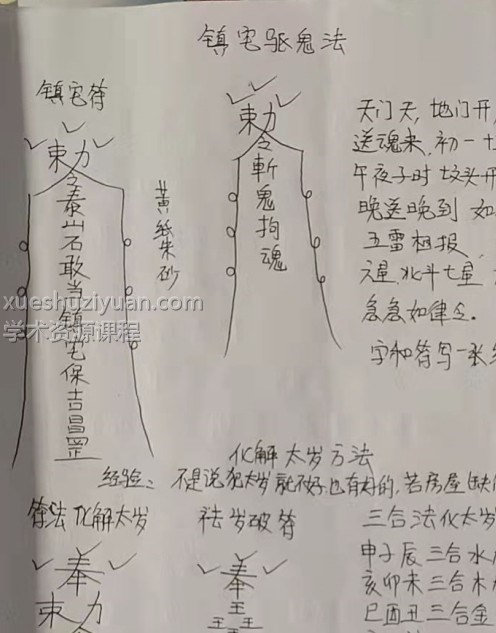 镇宅驱鬼法
镇宅符
敕令泰山石敢当镇宅保吉昌罡
黄纸朱砂
敕令斩鬼拘魂
天门天,地门开,
送魂来,初一十
午夜子时坟头开
晚送晚到 如
五雷相报,
元星,北斗七星
急急如律令.
字和符写一张
xueshuziyuan.com
学术资源课程
化解太岁方法
经验: 不是说犯太岁就不好也有好的,若房屋缺
符法化解太岁
祛岁破符
三合法化太岁
奉
敕
奉
王
王王
申子辰三合水
亥卯未三合木
巳酉丑三合金